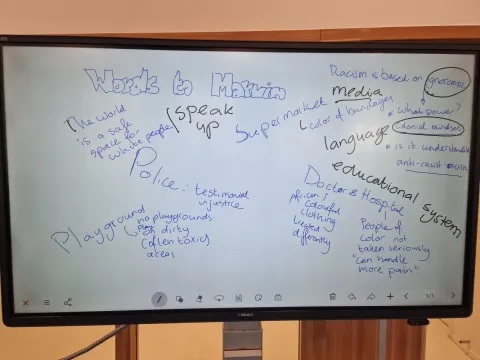 Words to
The world
is a safe
space for
white people
speak
up
Supermarket
color of bandages
Racism is based on ignorance
media
what power?
colonial mindset
language
is it understandable
anti-racist
educational system
Police: testimonial
injustice
Doctor & Hospital
colourful
clothing
treated
differently
People of
color not
taken seriously
"can handle
more pain"
Playground
no playgrounds
dirty
(often toxic)
areas
1/1